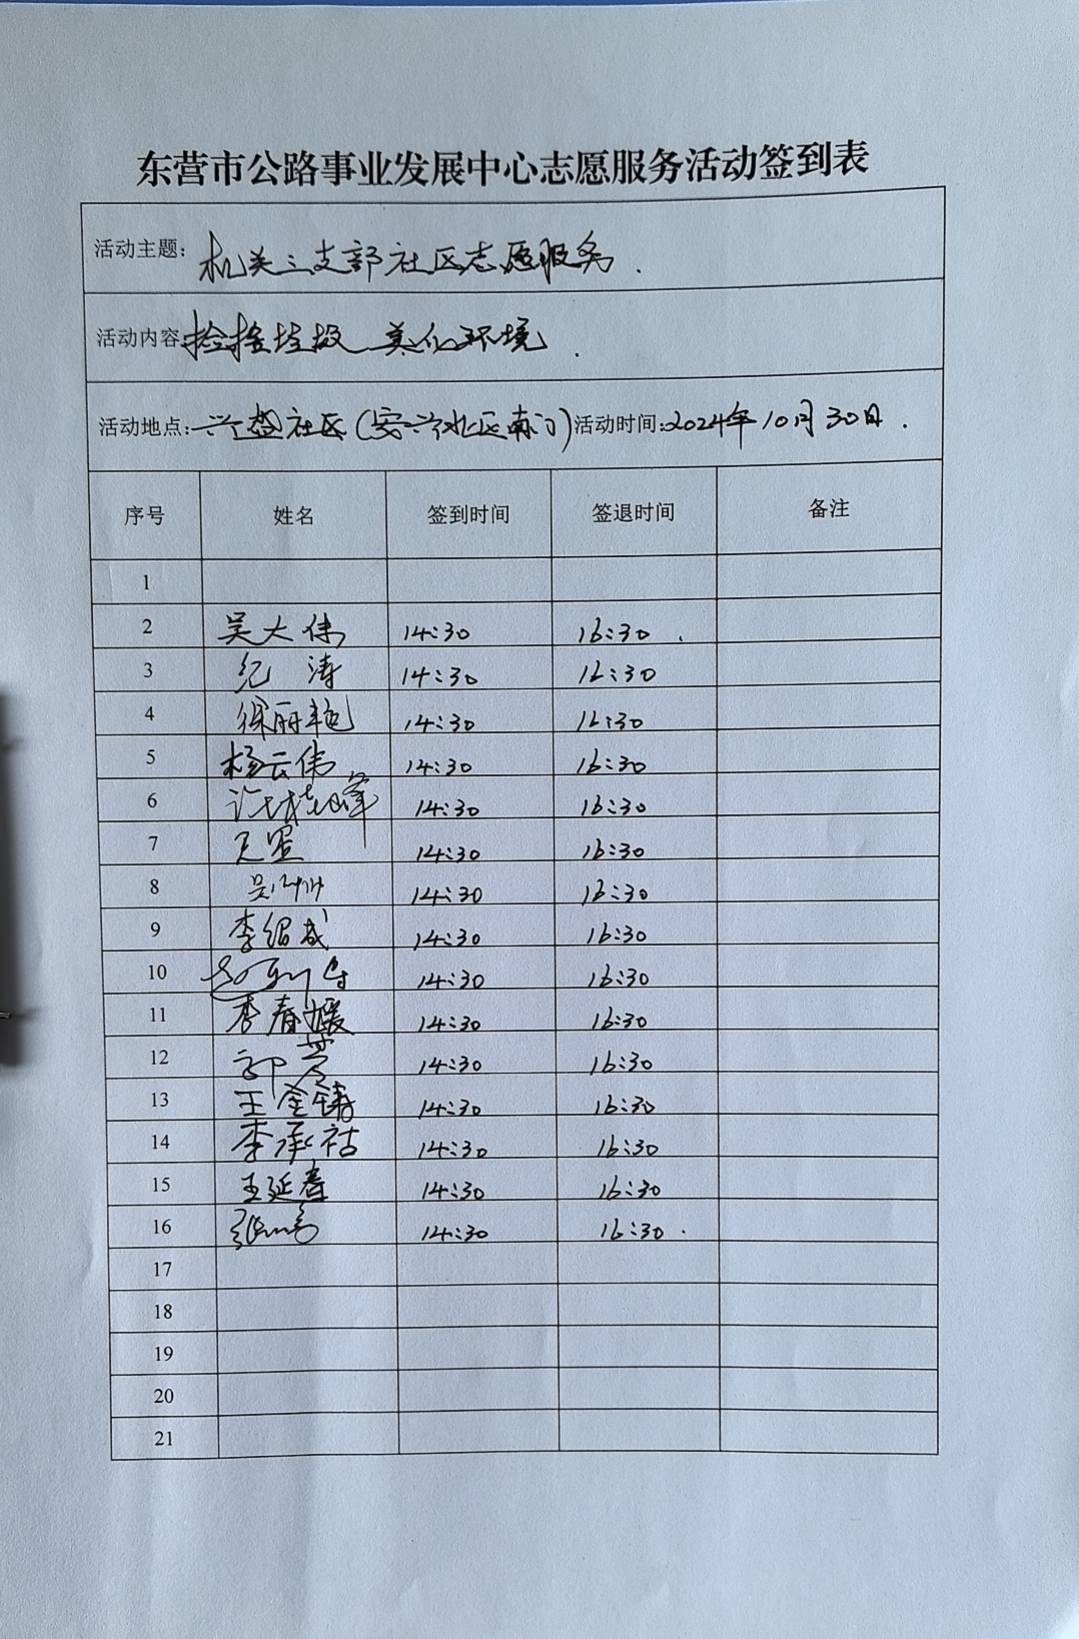 东营市公路事业发展中心志愿服务活动签到表
活动主题: 机关三支部社区志愿服务.
活动内容: 捡拾垃圾 美化环境.
活动地点: 兴盛社区(安兴北区南门) 活动时间: 2024年10月30日.
序号 姓名 签到时间 签退时间 备注
1
2 吴大伟 14:30 16:30.
3 纪涛 14:30 16:30
4 徐丽艳 14:30 16:30
5 杨云伟 14:30 16:30
6 14:30 16:30
7 14:30 16:30
8 14:30 16:30
9 李绍成 14:30 16:30
10 14:30 16:30
11 李春媛 14:30 16:30
12 郭芳 14:30 16:30
13 王金铸 14:30 16:30
14 李承祜 14:30 16:30
15 王延春 14:30 16:30
16 14:30 16:30.
17
18
19
20
21